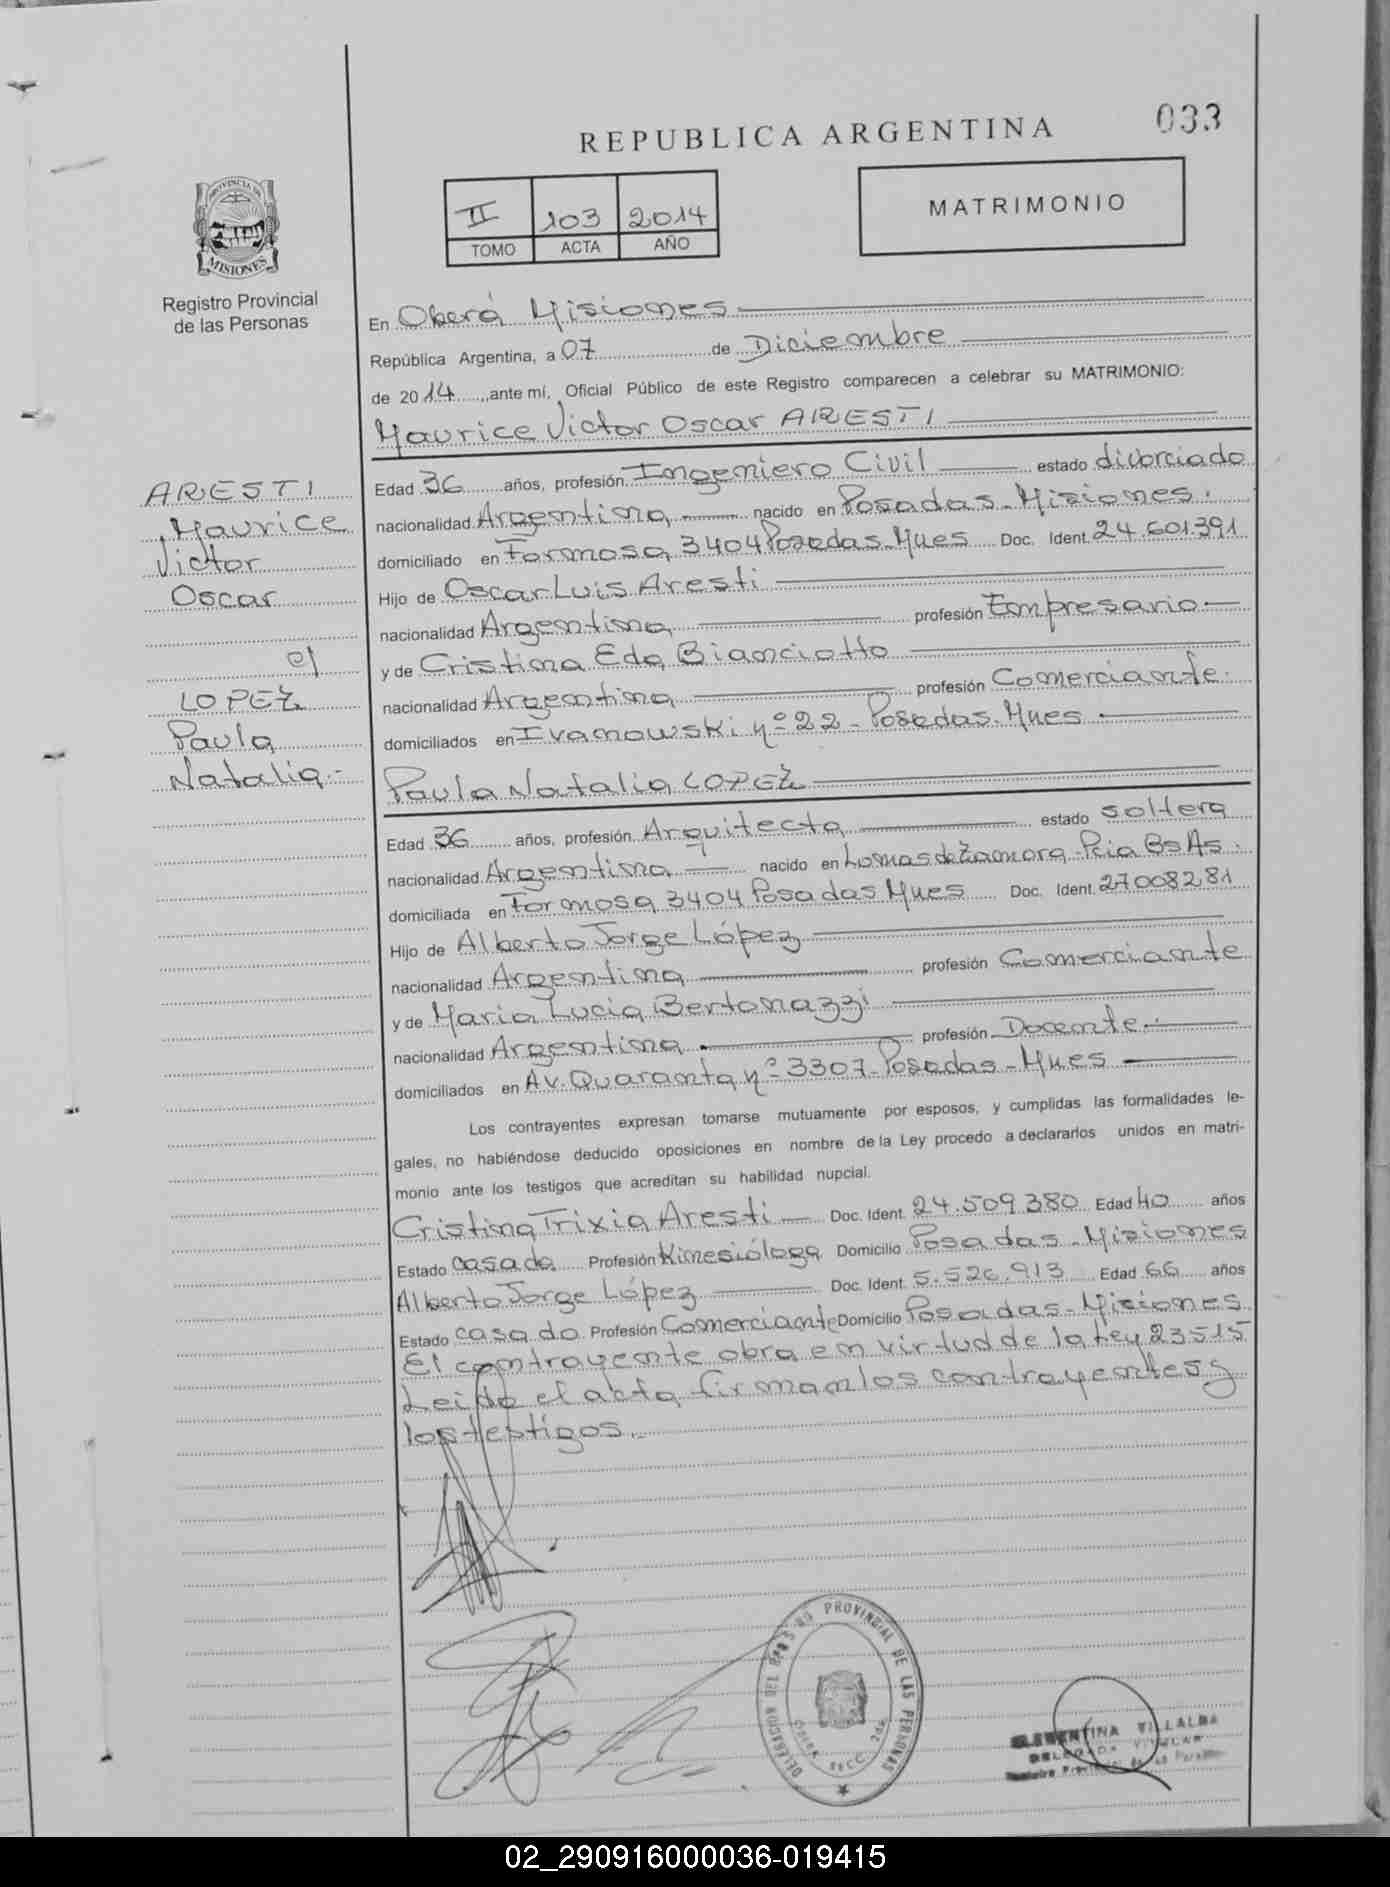 033
REPUBLICA ARGENTINA
II 103 2014
TOMO ACTA AÑO
MATRIMONIO
PROVINCIA DE
MISIONES
Registro Provincial
de las Personas
En Oberá Misiones
República Argentina, a 07 de Diciembre
de 2014, ante mí, Oficial Público de este Registro comparecen a celebrar su MATRIMONIO:
Maurice Victor Oscar ARESTI
Edad 36 años, profesión Ingeniero Civil estado divorciado
nacionalidad Argentina nacido en Posadas - Misiones.
domiciliado en Formosa 3404 Posadas - Mnes Doc. Ident. 24.601.391
Hijo de Oscar Luis Aresti
nacionalidad Argentina profesión Empresario
y de Cristina Eda Bianciotto
nacionalidad Argentina profesión Comerciante.
domiciliados en Ivanowski nº 22 - Posadas - Mnes
Paula Natalia LOPEZ
Edad 36 años, profesión Arquitecta estado soltera
nacionalidad Argentina nacido en Lomas de Zamora - Pcia Bs As.
domiciliada en Formosa 3404 Posadas Mnes Doc. Ident. 27008281
Hijo de Alberto Jorge López
nacionalidad Argentina profesión Comerciante
y de Maria Lucia Bertonazzi
nacionalidad Argentina profesión Docente.
domiciliados en Av. Quaranta nº 3307 - Posadas - Mnes
Los contrayentes expresan tomarse mutuamente por esposos, y cumplidas las formalidades le-
gales, no habiéndose deducido oposiciones en nombre de la Ley procedo a declararlos unidos en matri-
monio ante los testigos que acreditan su habilidad nupcial.
Cristina Trixia Aresti Doc. Ident. 24.509.380 Edad 40 años
Estado casada Profesión Kinesióloga Domicilio Posadas - Misiones
Alberto Jorge López Doc. Ident. 5.526.913 Edad 66 años
Estado casado Profesión Comerciante Domicilio Posadas - Misiones
El contrayente obra en virtud de la Ley 23515
Leida el acta firman los contrayentes y
los testigos.
ARESTI
Maurice
Victor
Oscar
c/
LOPEZ
Paula
Natalia.-
DELEGACION DEL REGISTRO PROVINCIAL DE LAS PERSONAS
SECC. 2da
CLEMENTINA VILLALBA
DELEGADA TITULAR
02_290916000036-019415